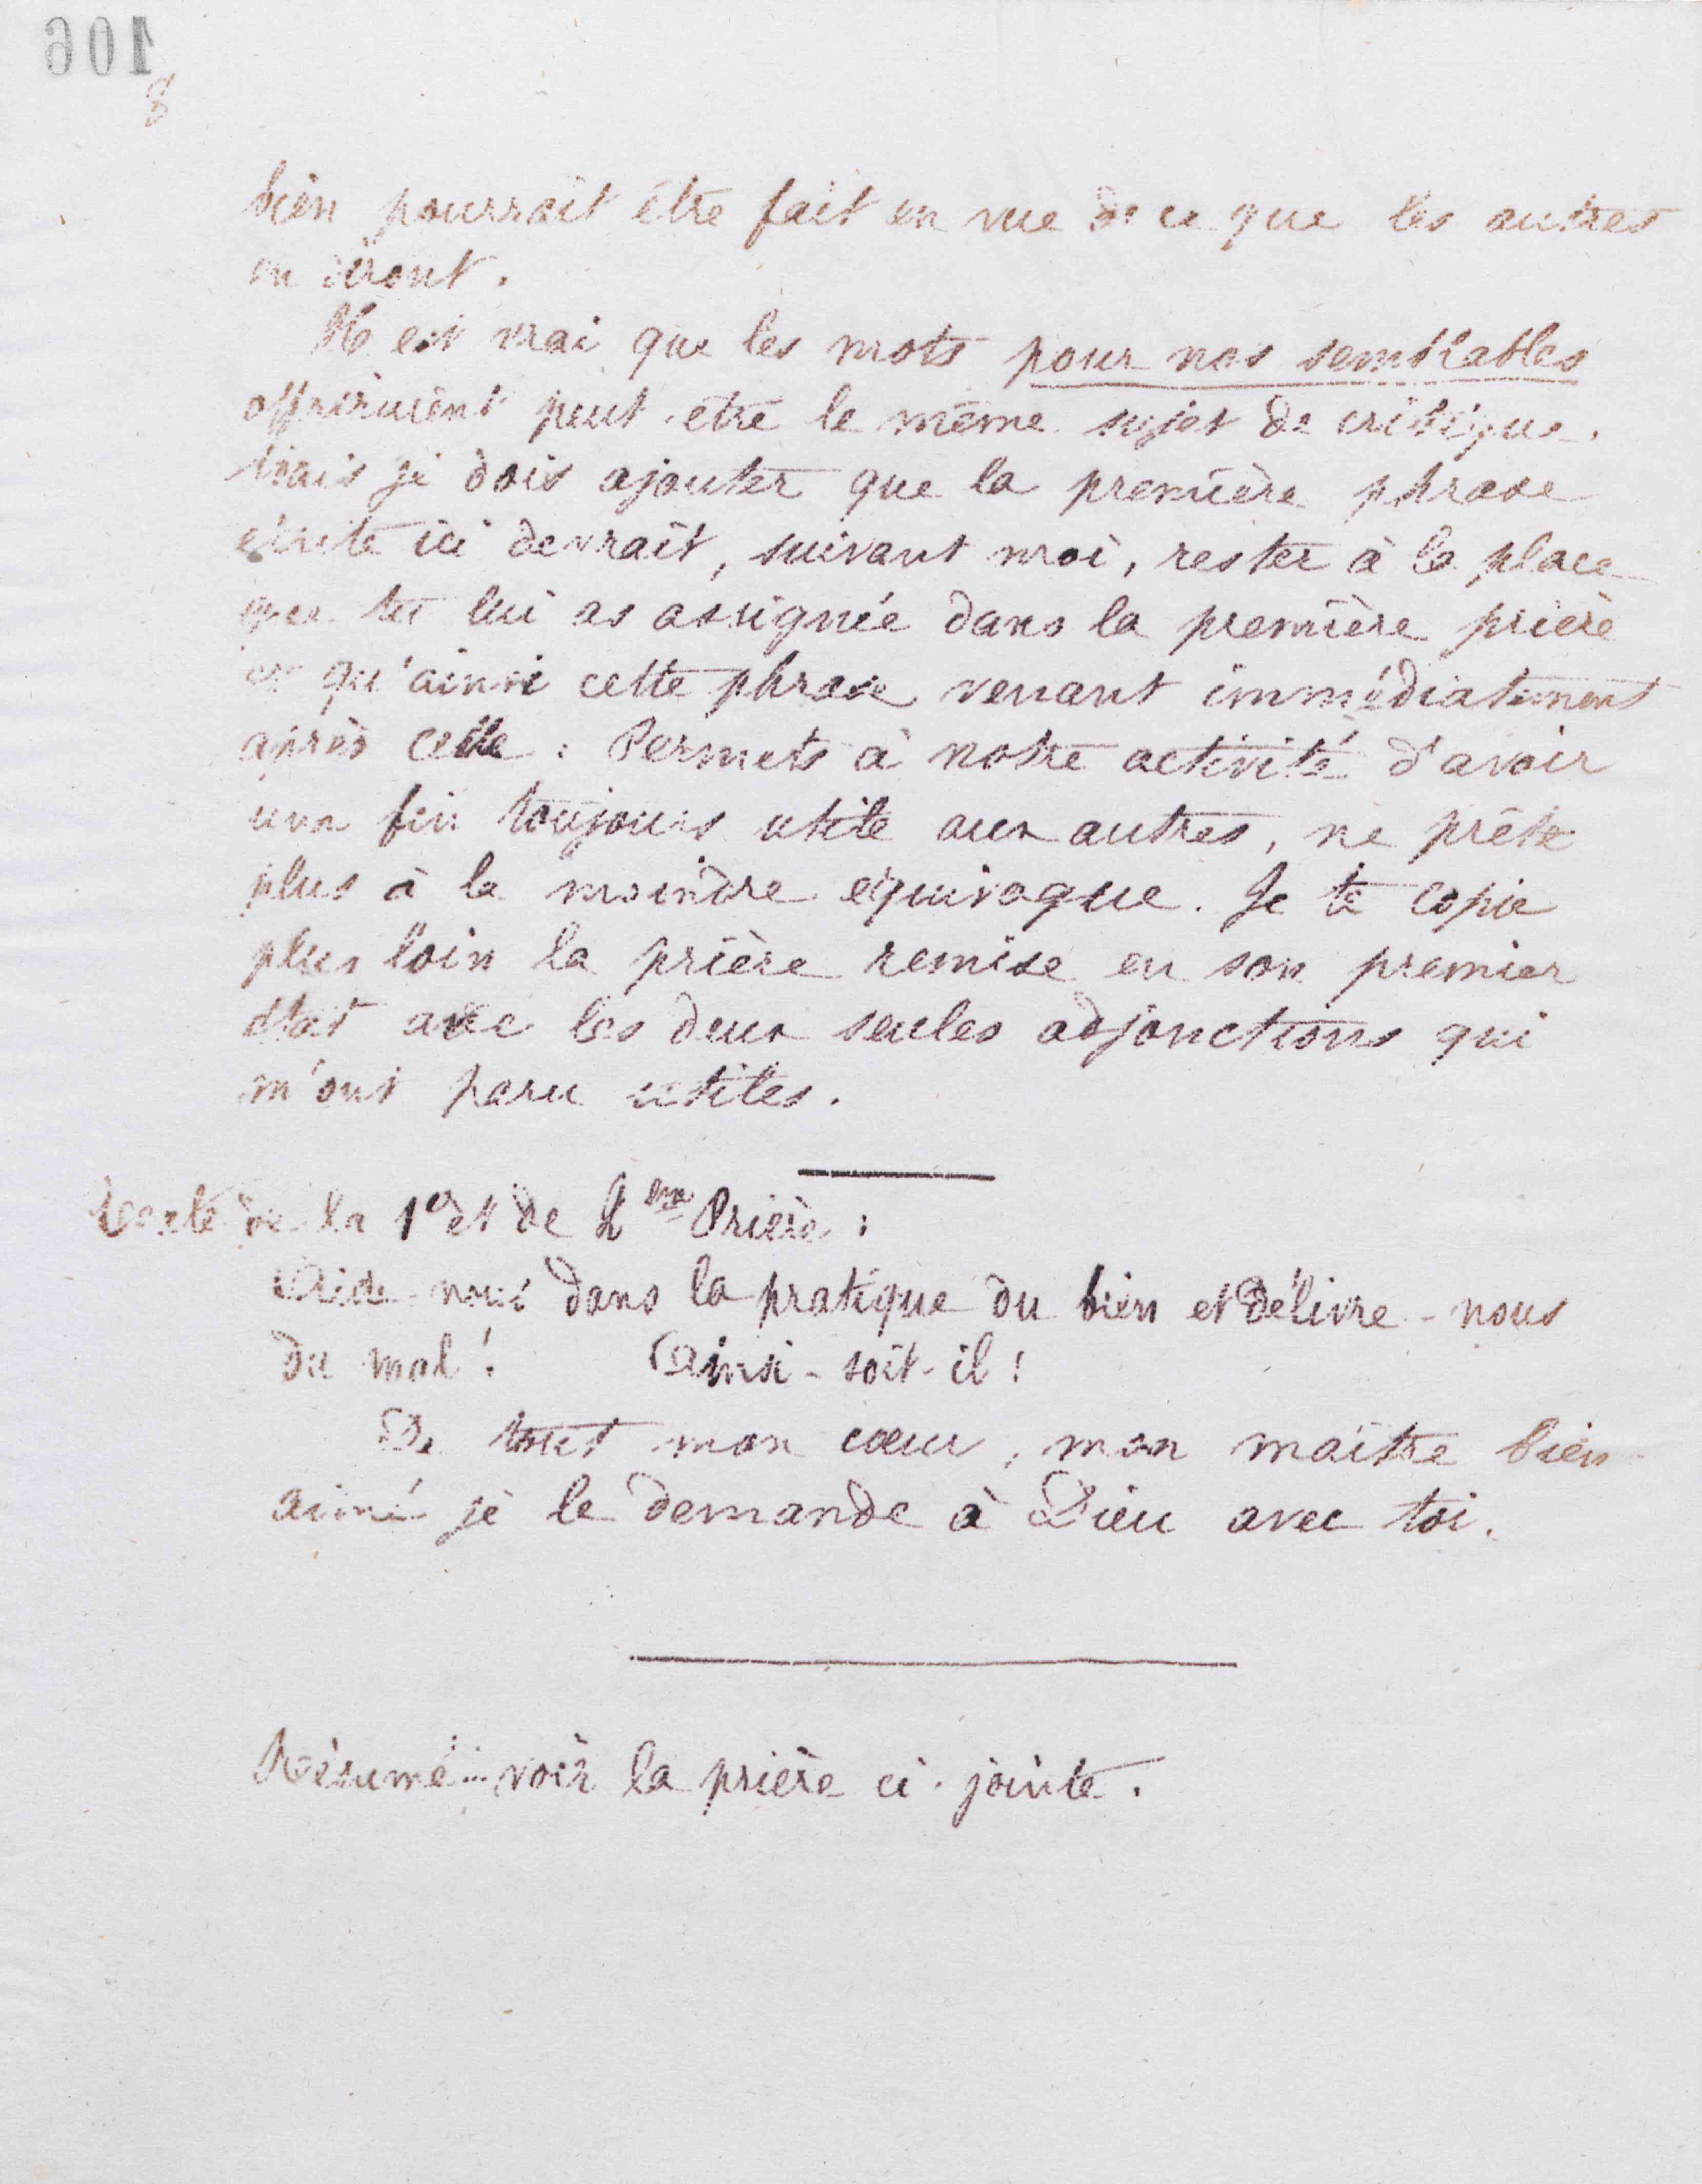 106
8
bien pourrait être fait en vue de ce que les autres
en diront.
Il est vrai que les mots pour nos semblables
offriraient peut-être le même sujet de critique.
Mais je dois ajouter que la première phrase
écrite ici devrait, suivant moi, rester à la place
que tu lui as assignée dans la première prière
et qu'ainsi cette phrase venant immédiatement
après celle : Permets à notre activité d'avoir
une fin toujours utile aux autres, ne prête
plus à la moindre équivoque. Je te copie
plus loin la prière remise en son premier
état avec les deux seules adjonctions qui
m'ont paru utiles.
Texte de la 1e et de 2eme Prière :
Aide-nous dans la pratique du bien et délivre-nous
du mal ! Ainsi-soit-il !
De tout mon cœur, mon maître bien
aimé je le demande à Dieu avec toi.
Résumé : voir la prière ci-jointe.